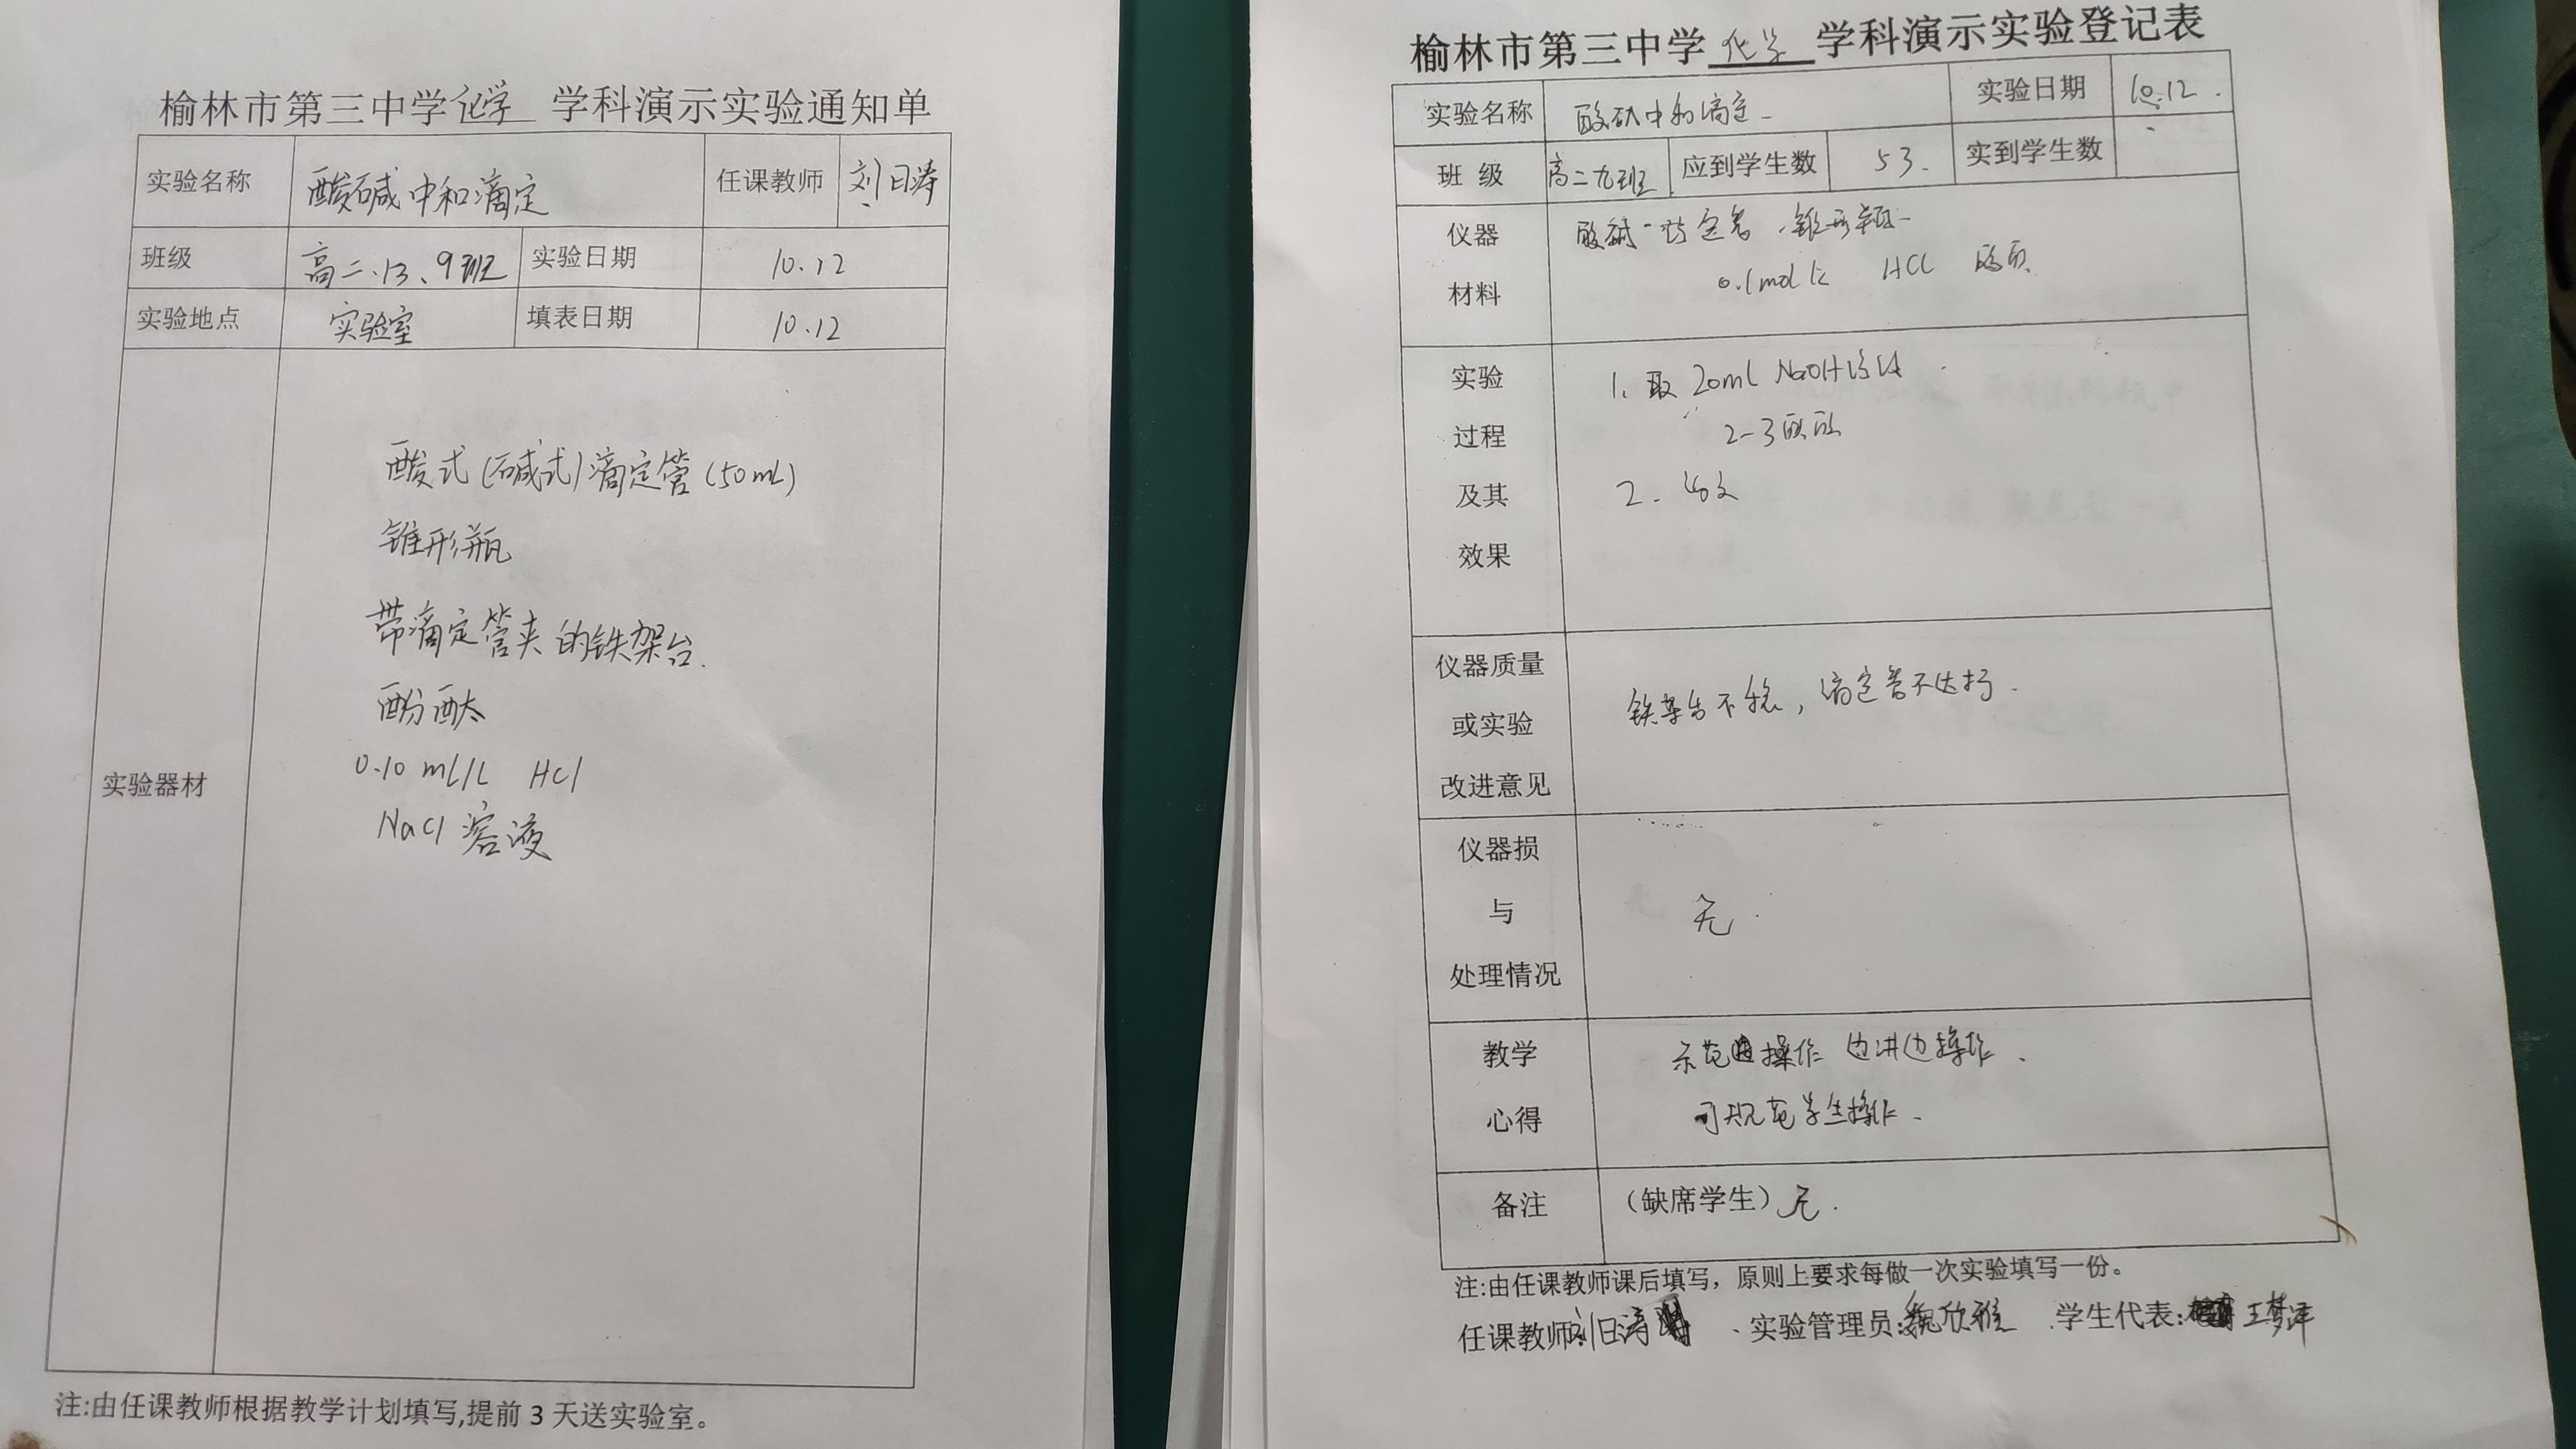 榆林市第三中学化学 学科演示实验通知单
实验名称 酸碱中和滴定 任课教师 刘日涛
班级 高二.13、9班 实验日期 10.12
实验地点 实验室 填表日期 10.12
实验器材
酸式(碱式)滴定管(50mL)
锥形瓶
带滴定管夹的铁架台.
酚酞
0.10 mL/L HCl
NaCl 溶液
注:由任课教师根据教学计划填写,提前 3 天送实验室。
榆林市第三中学 化学 学科演示实验登记表
实验名称 酸碱中和滴定 实验日期 10.12.
班 级 高二九班 应到学生数 53. 实到学生数
仪器
材料
酸碱 滴定管 锥形瓶
0.1mol/L HCl 酚酞
实验
过程
及其
效果
1. 取 20ml NaOH溶液
2-3滴酚酞
2.
仪器质量
或实验
改进意见
铁架台不稳，滴定管不达标.
仪器损
与
处理情况
无.
教学
心得
示范操作 边讲边操作.
可规范学生操作.
备注 (缺席学生) 无.
注:由任课教师课后填写，原则上要求每做一次实验填写一份。
任课教师:刘日涛 、实验管理员:魏欣雅 .学生代表: 王梦洋